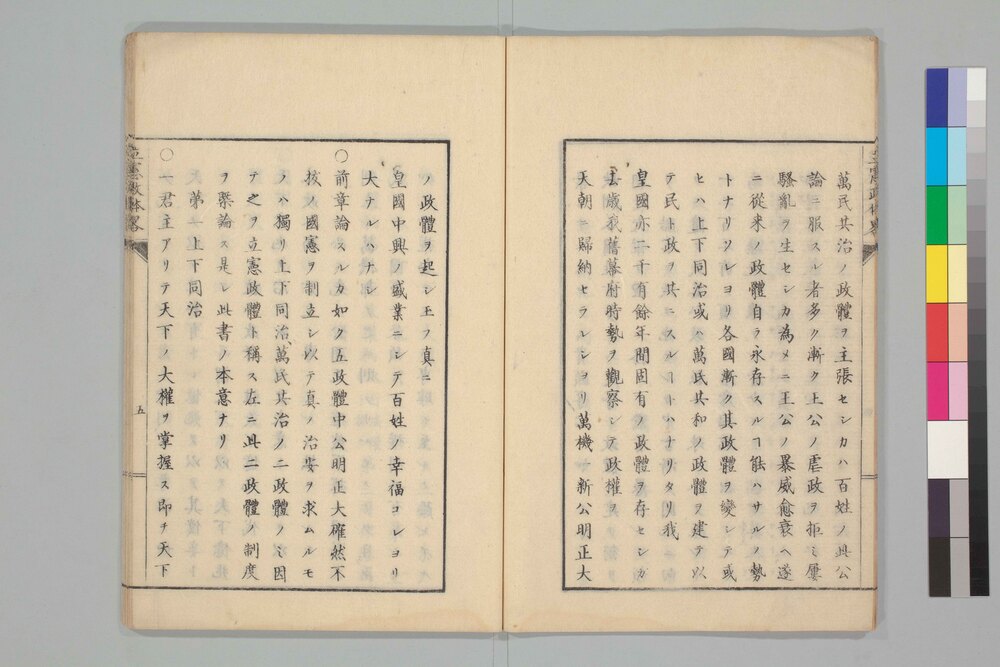 萬民共治ノ政體ヲ主張セシカハ百姓ノ此公
論ニ服スル者多ク漸ク王公ノ虐政ヲ拒ミ屢
騷亂ヲ生セシカ為メニ王公ノ暴威愈衰ヘ遂
ニ從來ノ政體自ラ永存スルヿ能ハサルノ勢
トナリソレヨリ各國漸ク其政體ヲ變シテ或
ヒハ上下同治或ハ萬民共和ノ政體ヲ建テ以
テ民ト政ヲ共ニスルヿトハナリタリ我
皇國亦二千有餘年間固有ノ政體ヲ存セシガ
去歳我舊幕府時勢ヲ觀察シテ政權ヲ
天朝ニ歸納セラレシヨリ萬機一新公明正大
ノ政體ヲ起シ玉フ真ニ
皇國中興ノ盛業ニシテ百姓ノ幸福コレヨリ
大ナルハナシ
○前章論スルカ如ク五政體中公明正大確然不
拔ノ國憲ヲ制立シ以テ真ノ治安ヲ求ムルモ
ノハ獨リ上下同治、萬民共治ノ二政體ノミ因
テ之ヲ立憲政體ト稱ス左ニ此二政體ノ制度
ヲ槩論ス是レ此書ノ本意ナリ
第一上下同治
○一君主アリテ天下ノ大權ヲ掌握ス即チ天下
立憲政体畧
五